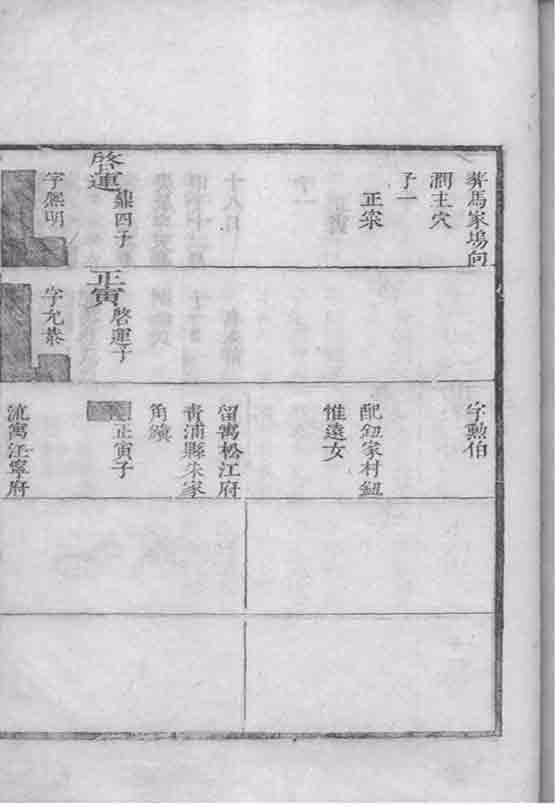 葬馬家塲向
澗主穴
子一
正宗
啓運
鼎四子
字熙明
正寅
啓運子
字允恭
字勲伯
配鈕家村鈕
惟遠女
留寓松江府
青浦縣朱家
角鎭
正寅子
流寓江寧府